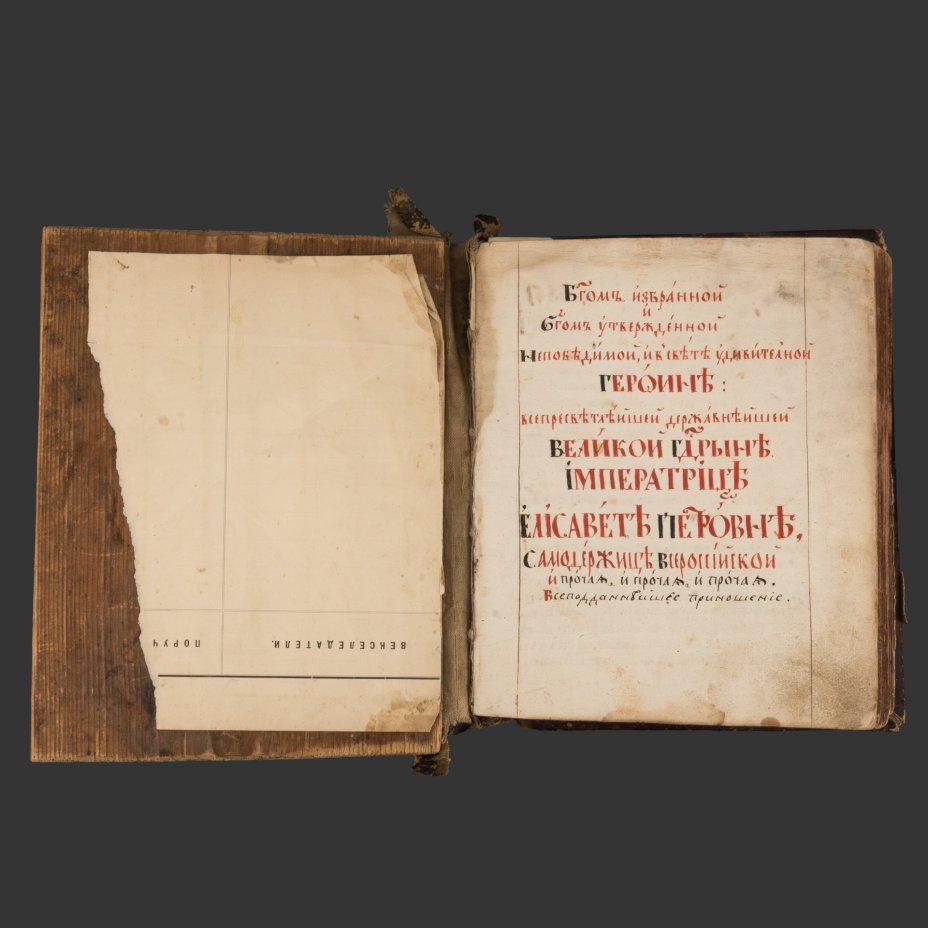 ВЕКСЕЛЕДАТЕЛИ. ПОРУЧ
Бг҃омъ и҆збра́нной
и҆
Бг҃омъ ᲂу҆твержде́нной
Непобѣди́мой, и҆ в̾ свѣ́тѣ ᲂу҆диви́телной
ГЕРѠ́ИНѢ :
всепресвѣтлѣ́йшей держа́внѣйшей
ВЕЛИ́КОЙ ГД҃РЫНѢ
ІМПЕРАТРІ́ЦѢ
ЕЛІСАВЕ́ТѢ ПЕТРО́ВНѢ,
САМОДЕ́РЖИЦѢ ВСЕРОССІ́ЙСКОЙ
и҆ про́чаѧ, и҆ про́чаѧ, и҆ про́чаѧ.
Всеподданнѣйшее приношеніе.